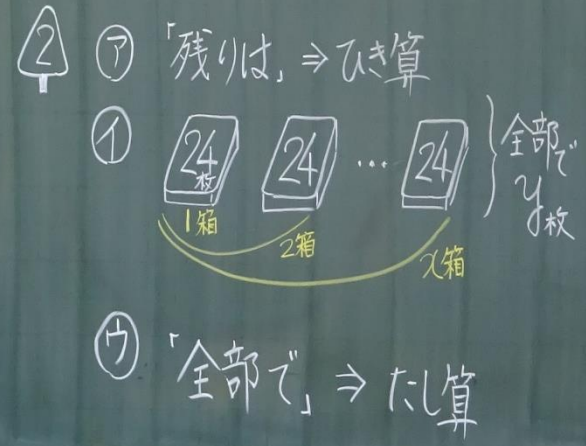 2 ㋐ 「残りは」⇒ひき算
㋑ 24枚 24 … 24 全部でy枚
1箱 2箱 x箱
㋒ 「全部で」⇒たし算